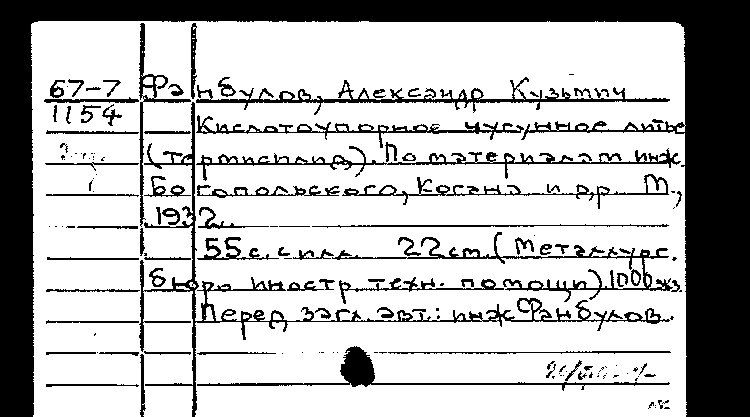 67-7 Фанбулов, Александр Кузьмич
1154
Кислотоупорное чугунное литье
(термисилид). По материалам инж.
Богопольского, Когана и др. М.,
1932.
55 с. с илл. 22 см. (Металлург.
бюро иностр. техн. помощи) 1000 экз
Перед загл. авт.: инж Фанбулов.